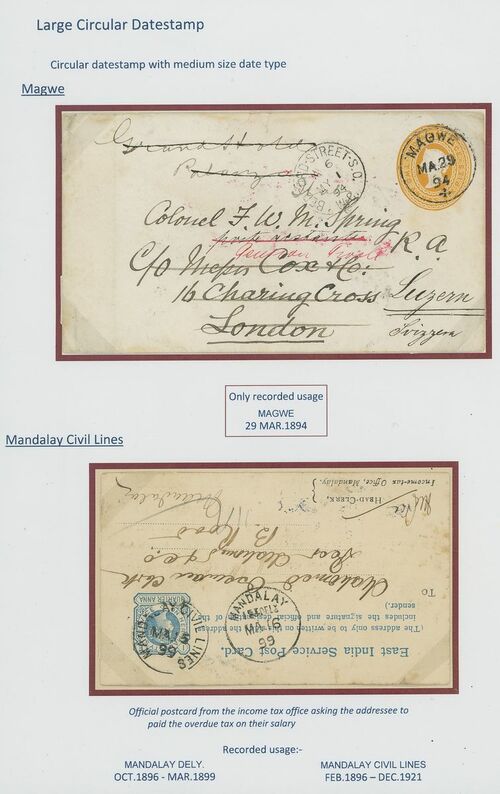 Large Circular Datestamp
Circular datestamp with medium size date type
Magwe
Grand Hotel
Palanza
MAGWE
MA.29
94
STREET-S.O.
6
MY 1
94
Colonel F. W. M. Spring
R.A
poste restante
Pension Tivoli
C/o Messrs Cox & Co:
16 Charing Cross
Luzern
London
Svizzera
Only recorded usage
MAGWE
29 MAR.1894
Mandalay Civil Lines
East India Service Post Card.
(The address only to be written on this side. The address
includes the signature and official designation of the
sender.)
To
QUARTER ANNA
MANDALAY CIVIL LINES
MA 15
99
MANDALAY
MA 16
99
B Road
HEAD-CLERK,
Income-tax
Office, Mandalay.
Mandalay
Official postcard from the income tax office asking the addressee to
paid the overdue tax on their salary
Recorded usage:-
MANDALAY DELY.
OCT.1896 - MAR.1899
MANDALAY CIVIL LINES
FEB.1896 – DEC.1921